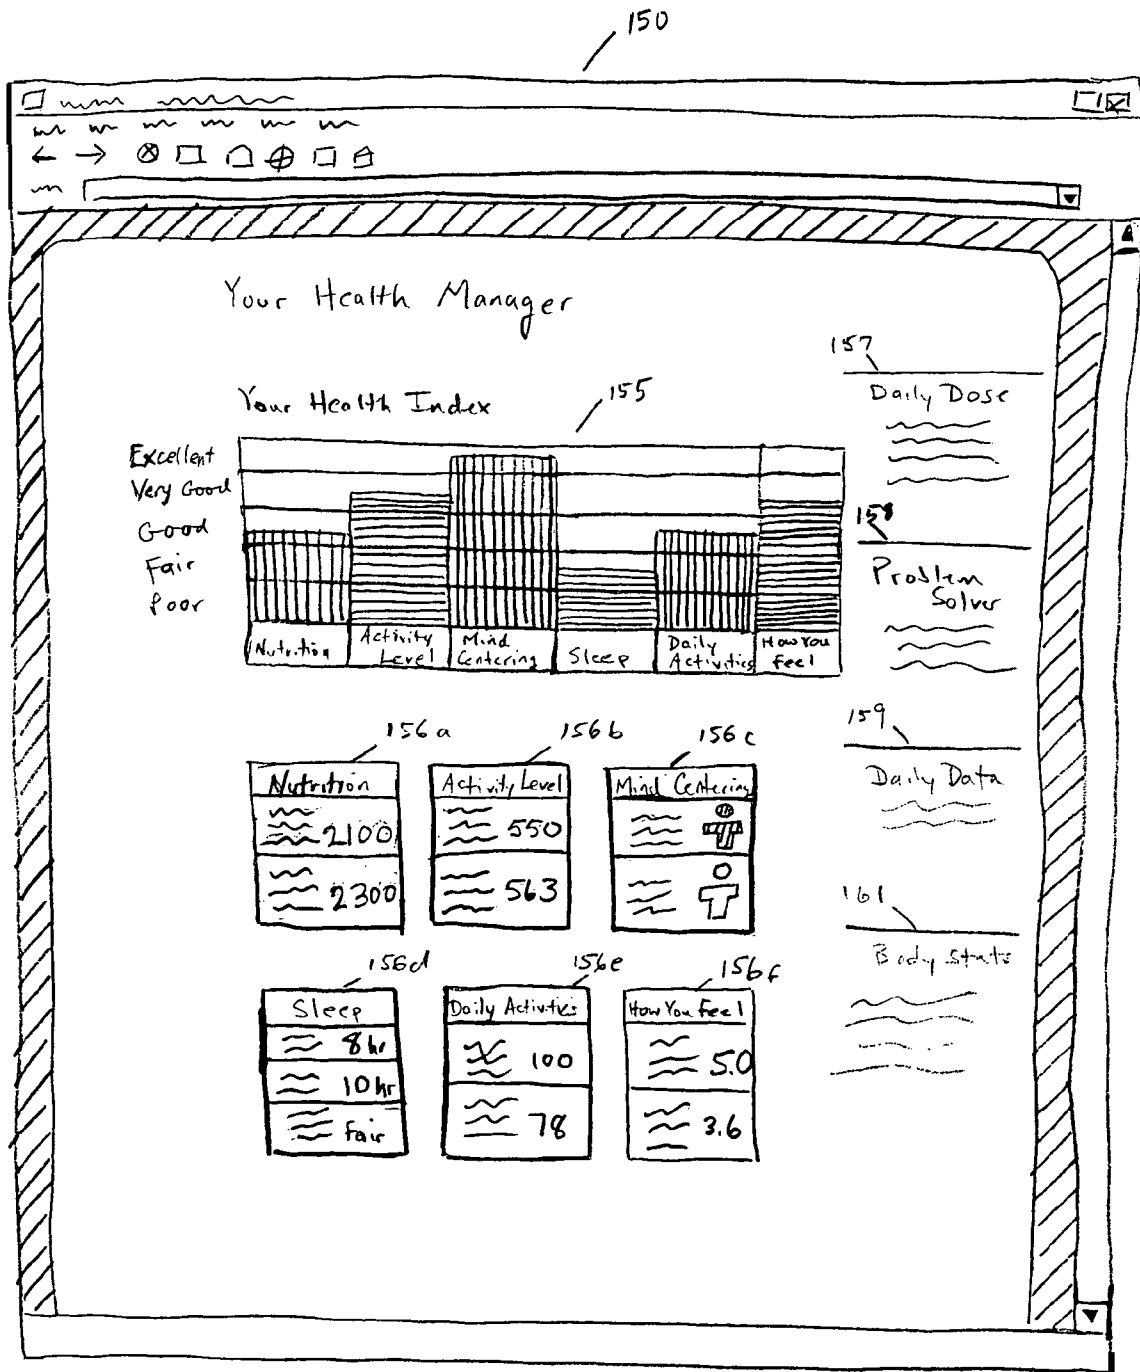 150
Your Health Manager
Your Health Index
155
Excellent
Very Good
Good
Fair
Poor
Nutrition
Activity
Level
Mind
Centering
Sleep
Daily
Activities
How You
Feel
157
Daily Dose
158
Problem
Solver
159
Daily Data
161
Body Stats
156a
Nutrition
2100
2300
156b
Activity Level
550
563
156c
Mind Centering
156d
Sleep
8 hr
10 hr
Fair
156e
Daily Activities
100
78
156f
How You Feel
5.0
3.6